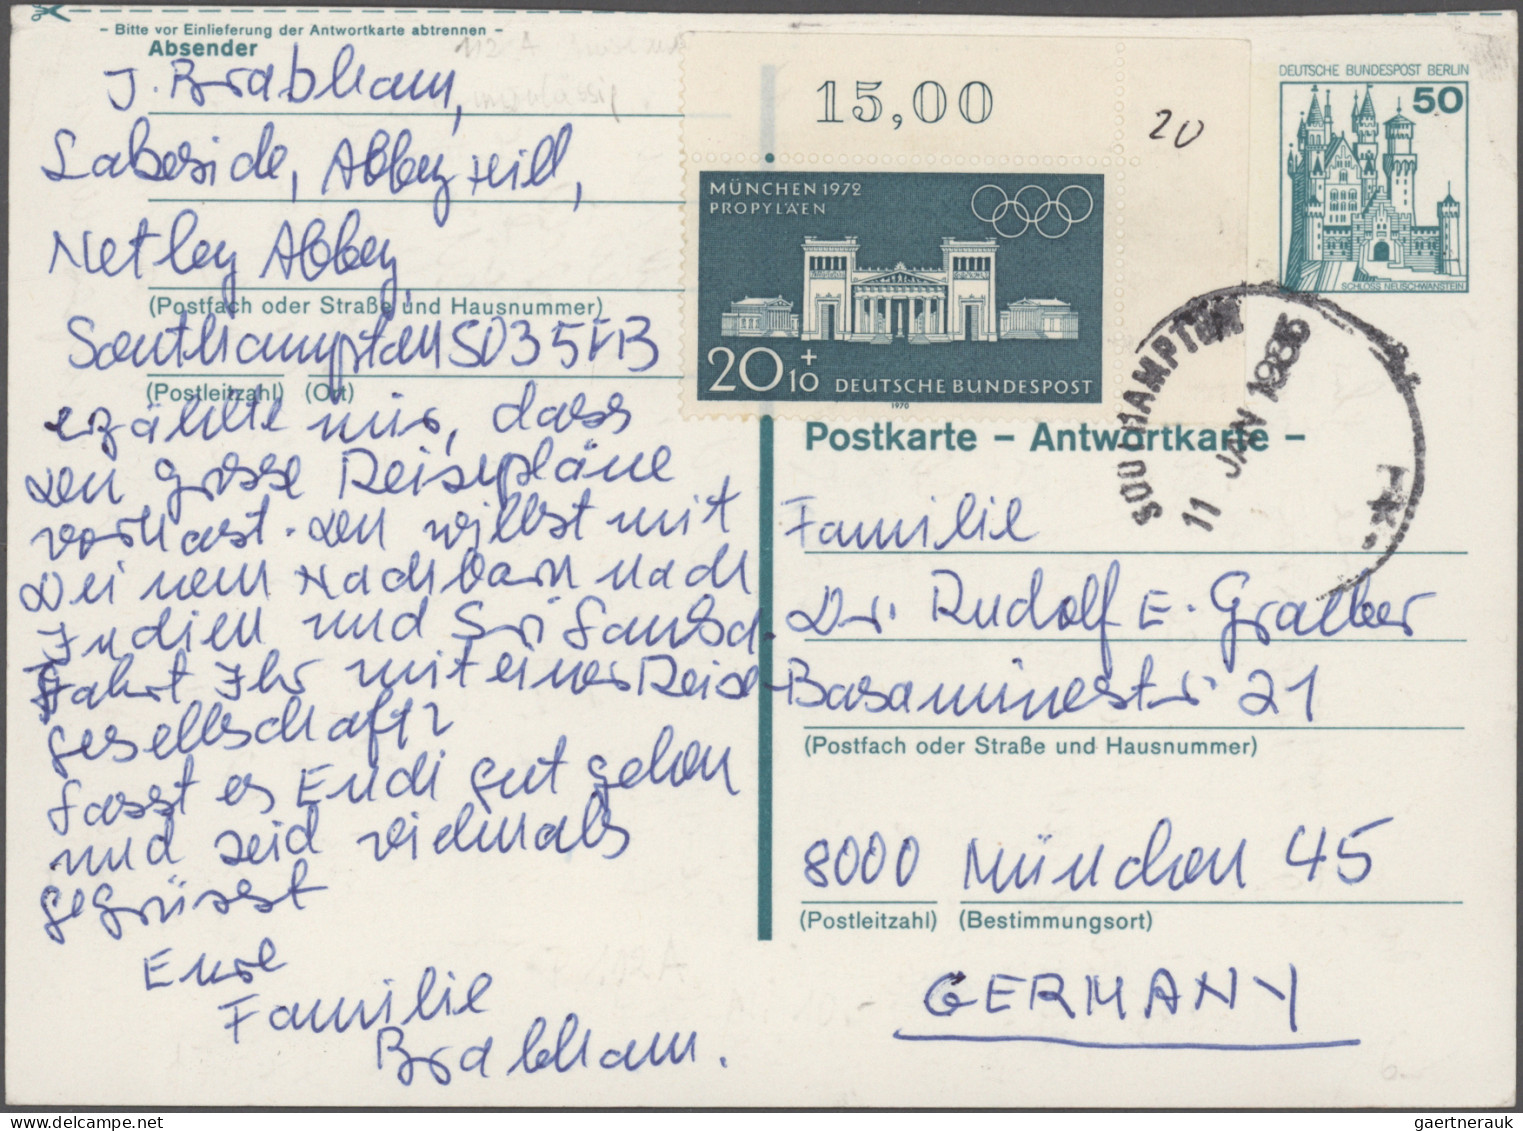 - Bitte vor Einlieferung der Antwortkarte abtrennen -
Absender
J. Brabham,
Lakeside, Abbey Hill,
Netley Abbey,
(Postfach oder Straße und Hausnummer)
Southampton SO3 5FB
(Postleitzahl) (Ort)
erzählte mir, dass
Du grosse Reisepläne
vorhast. Du willst mit
Deinem Nachbarn nach
Indien und Sri Lanka.
Fahrt Ihr mit einer Reise-
gesellschaft?
Lasst es Euch gut gehen
und seid vielmals
gegrüsst
Eure
Familie
Brabham.
15,00
20
MÜNCHEN 1972
PROPYLÄEN
20+10 DEUTSCHE BUNDESPOST
1970
DEUTSCHE BUNDESPOST BERLIN
50
SCHLOSS NEUSCHWANSTEIN
SOUTHAMPTON
11 JAN 1985
Postkarte – Antwortkarte –
Familie
Dr. Rudolf E. Graeber
Basaminestr. 21
(Postfach oder Straße und Hausnummer)
8000 München 45
(Postleitzahl) (Bestimmungsort)
GERMANY
gaertnerauk